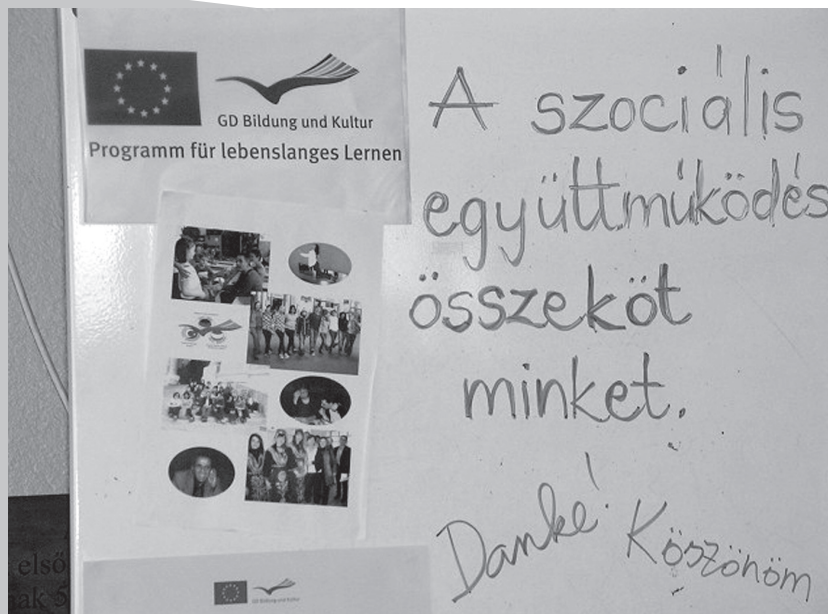 GD Bildung und Kultur
Programm für lebenslanges Lernen
A szociális
együttműködés
összeköt
minket.
Danke! Köszönöm
első
nak 5
GD Bildung und Kultur